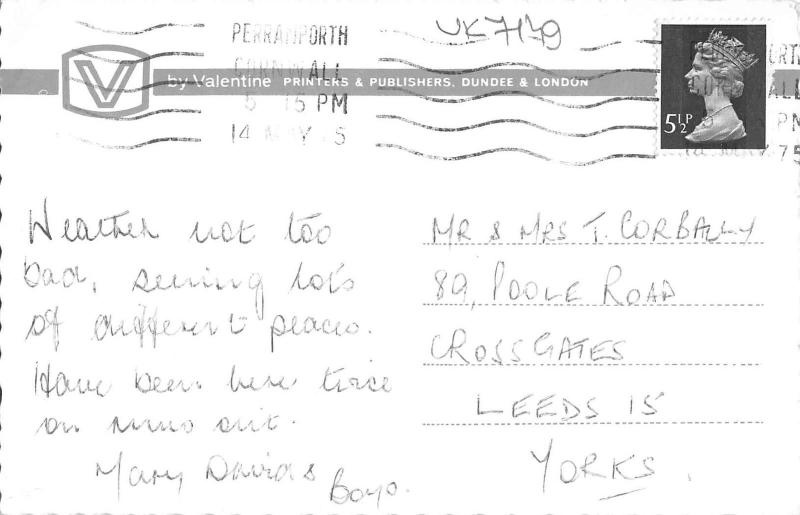 PERRANPORTH
CORNWALL
5 - 15 PM
14 MAY 75
UK7179
V
by Valentine PRINTERS & PUBLISHERS, DUNDEE & LONDON
5½P
Weather not too
bad, seeing lots
of different places.
Have been here twice
on mino out.
Mary, David &
Boyo.
MR & MRS T. CORBALLY
89, POOLE ROAD
CROSSGATES
LEEDS 15
YORKS.